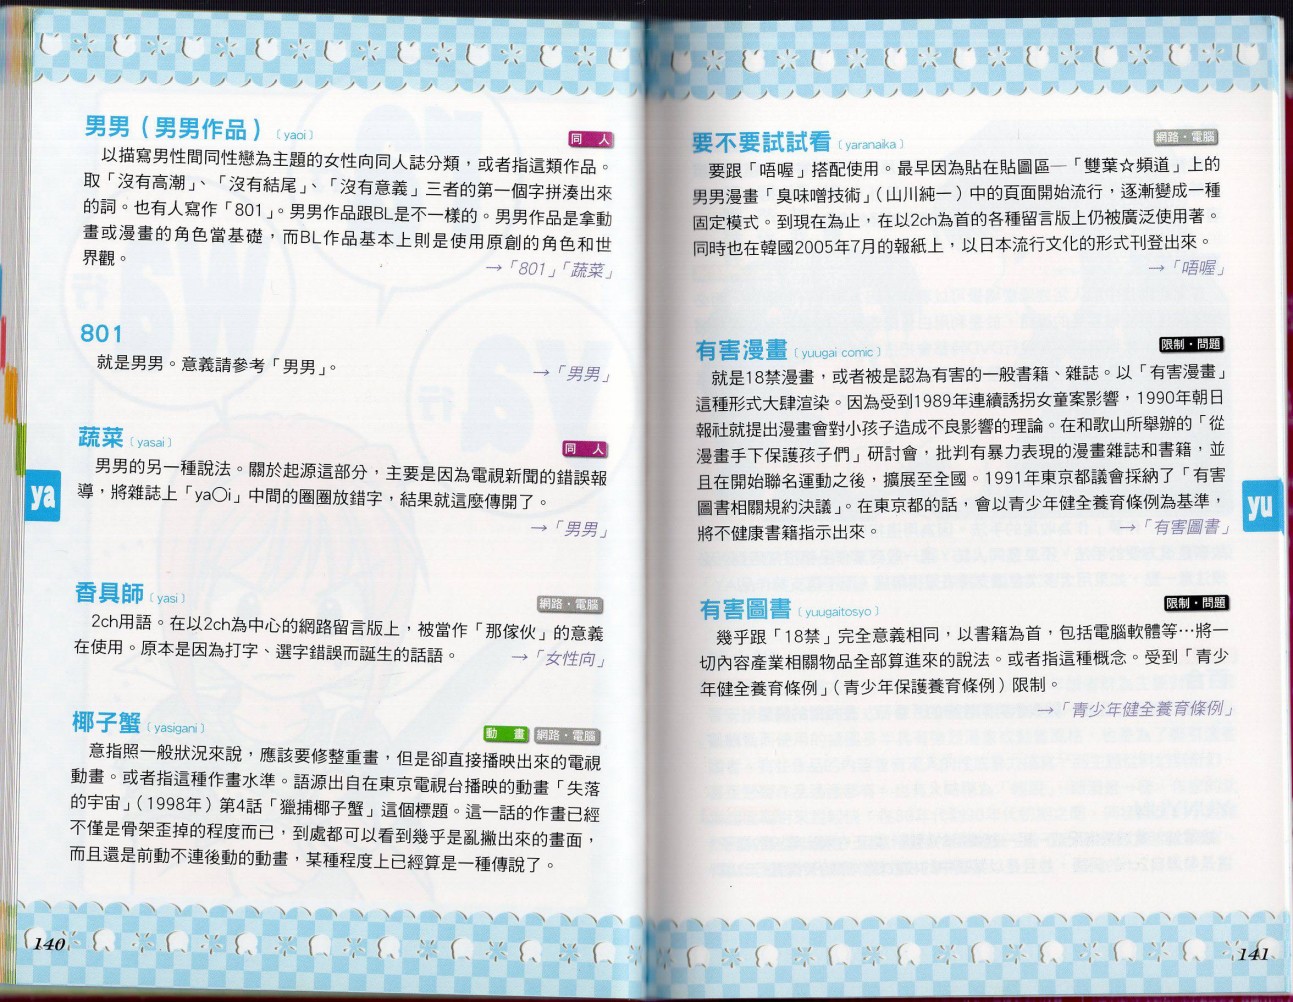 男男（男男作品）〔yaoi〕
同 人
以描寫男性間同性戀為主題的女性向同人誌分類，或者指這類作品。
取「沒有高潮」、「沒有結尾」、「沒有意義」三者的第一個字拼湊出來
的詞。也有人寫作「801」。男男作品跟BL是不一樣的。男男作品是拿動
畫或漫畫的角色當基礎，而BL作品基本上則是使用原創的角色和世
界觀。
→「801」「蔬菜」
801
就是男男。意義請參考「男男」。
→「男男」
蔬菜〔yasai〕
同 人
男男的另一種說法。關於起源這部分，主要是因為電視新聞的錯誤報
導，將雜誌上「ya○i」中間的圈圈放錯字，結果就這麼傳開了。
→「男男」
ya
香具師〔yasi〕
網路・電腦
2ch用語。在以2ch為中心的網路留言版上，被當作「那傢伙」的意義
在使用。原本是因為打字、選字錯誤而誕生的話語。
→「女性向」
椰子蟹〔yasigani〕
動 畫
網路・電腦
意指照一般狀況來說，應該要修整重畫，但是卻直接播映出來的電視
動畫。或者指這種作畫水準。語源出自在東京電視台播映的動畫「失落
的宇宙」（1998年）第4話「獵捕椰子蟹」這個標題。這一話的作畫已經
不僅是骨架歪掉的程度而已，到處都可以看到幾乎是亂撇出來的畫面，
而且還是前動不連後動的動畫，某種程度上已經算是一種傳說了。
140
要不要試試看〔yaranaika〕
網路・電腦
要跟「唔喔」搭配使用。最早因為貼在貼圖區—「雙葉☆頻道」上的
男男漫畫「臭味噌技術」（山川純一）中的頁面開始流行，逐漸變成一種
固定模式。到現在為止，在以2ch為首的各種留言版上仍被廣泛使用著。
同時也在韓國2005年7月的報紙上，以日本流行文化的形式刊登出來。
→「唔喔」
有害漫畫〔yuugai comic〕
限制・問題
就是18禁漫畫，或者被是認為有害的一般書籍、雜誌。以「有害漫畫」
這種形式大肆渲染。因為受到1989年連續誘拐女童案影響，1990年朝日
報社就提出漫畫會對小孩子造成不良影響的理論。在和歌山所舉辦的「從
漫畫手下保護孩子們」研討會，批判有暴力表現的漫畫雜誌和書籍，並
且在開始聯名運動之後，擴展至全國。1991年東京都議會採納了「有害
圖書相關規約決議」。在東京都的話，會以青少年健全養育條例為基準，
將不健康書籍指示出來。
→「有害圖書」
yu
有害圖書〔yuugaitosyo〕
限制・問題
幾乎跟「18禁」完全意義相同，以書籍為首，包括電腦軟體等…將一
切內容產業相關物品全部算進來的說法。或者指這種概念。受到「青少
年健全養育條例」（青少年保護養育條例）限制。
→「青少年健全養育條例」
141